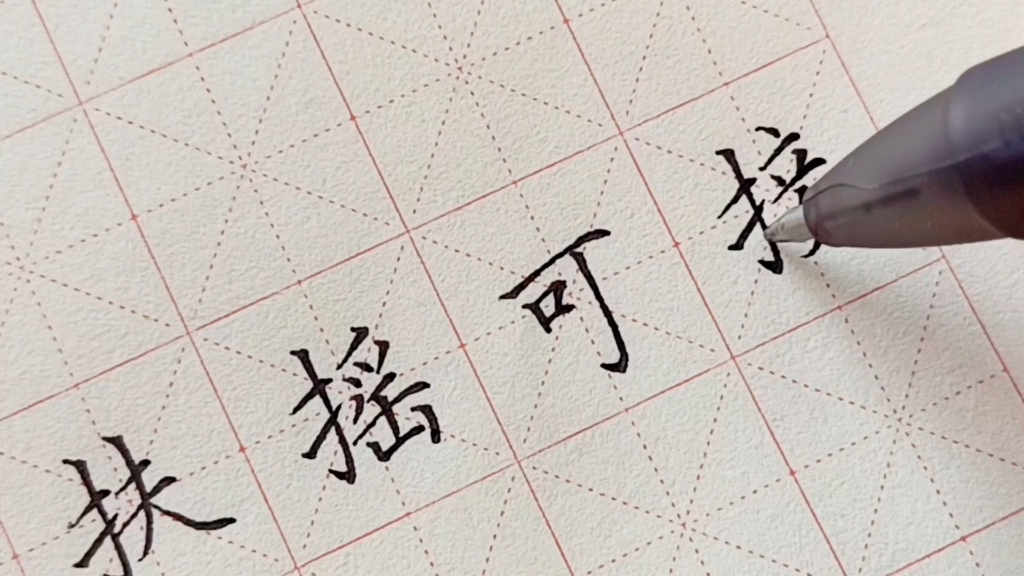 扶摇可接